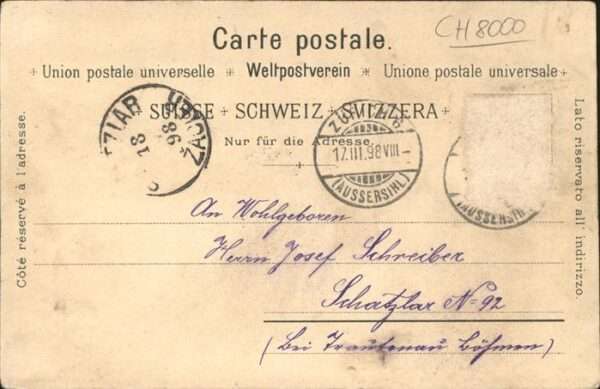 CH 8000
Carte postale.
+ Union postale universelle * Weltpostverein * Unione postale universale +
+ SUISSE + SCHWEIZ + SVIZZERA +
Nur für die Adresse.
Côté réservé à l'adresse.
Lato riservato all' indirizzo.
18
98
17.III.98 VIII -
(AUSSERSIHL)
(AUSSERSIHL)
An Wohlgeboren
Herrn Josef Schreiber
Schatzlar No 92
(Bei Trautenau Böhmen)